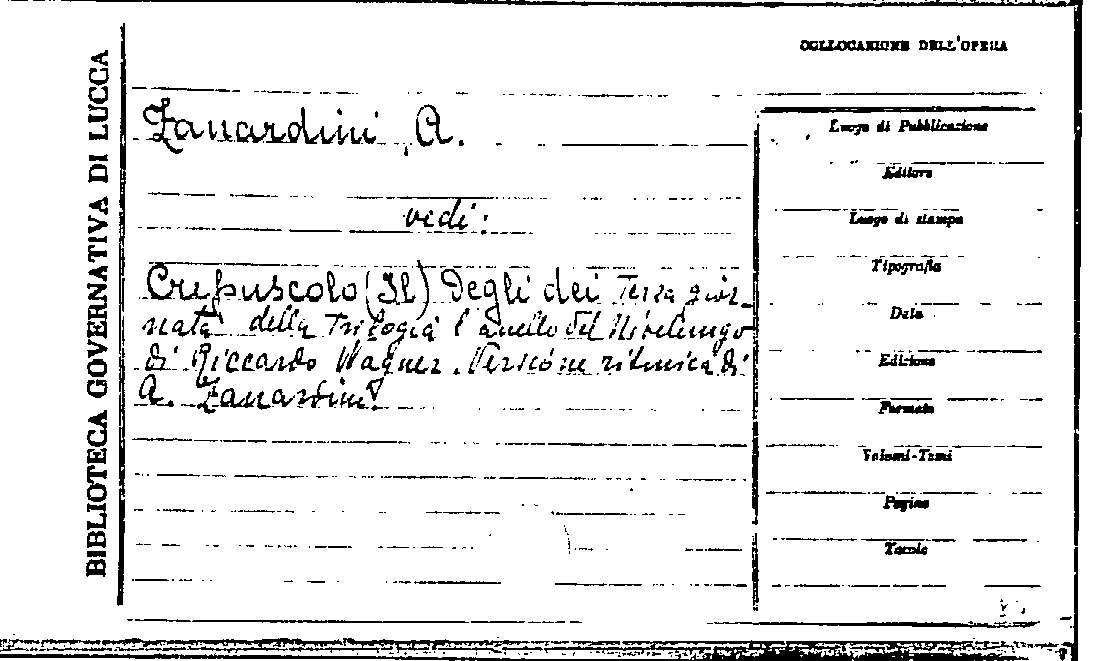 BIBLIOTECA GOVERNATIVA DI LUCCA
COLLOCAZIONE DELL'OPERA
Zanardini A.
vedi:
Crepuscolo (Il) degli dei Terza gior-
nata della Trilogia l'anello del Nibelungo
di Riccardo Wagner. Versione ritmica di
A. Zanardini.
Luogo di Pubblicazione
Editore
Luogo di stampa
Tipografia
Data
Edizione
Formato
Volumi-Tomi
Pagine
Tavole